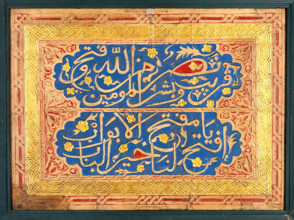 نصر من الله وفتح قريب وبشر المؤمنين
يا مفتح الابواب افتح لنا خير الباب